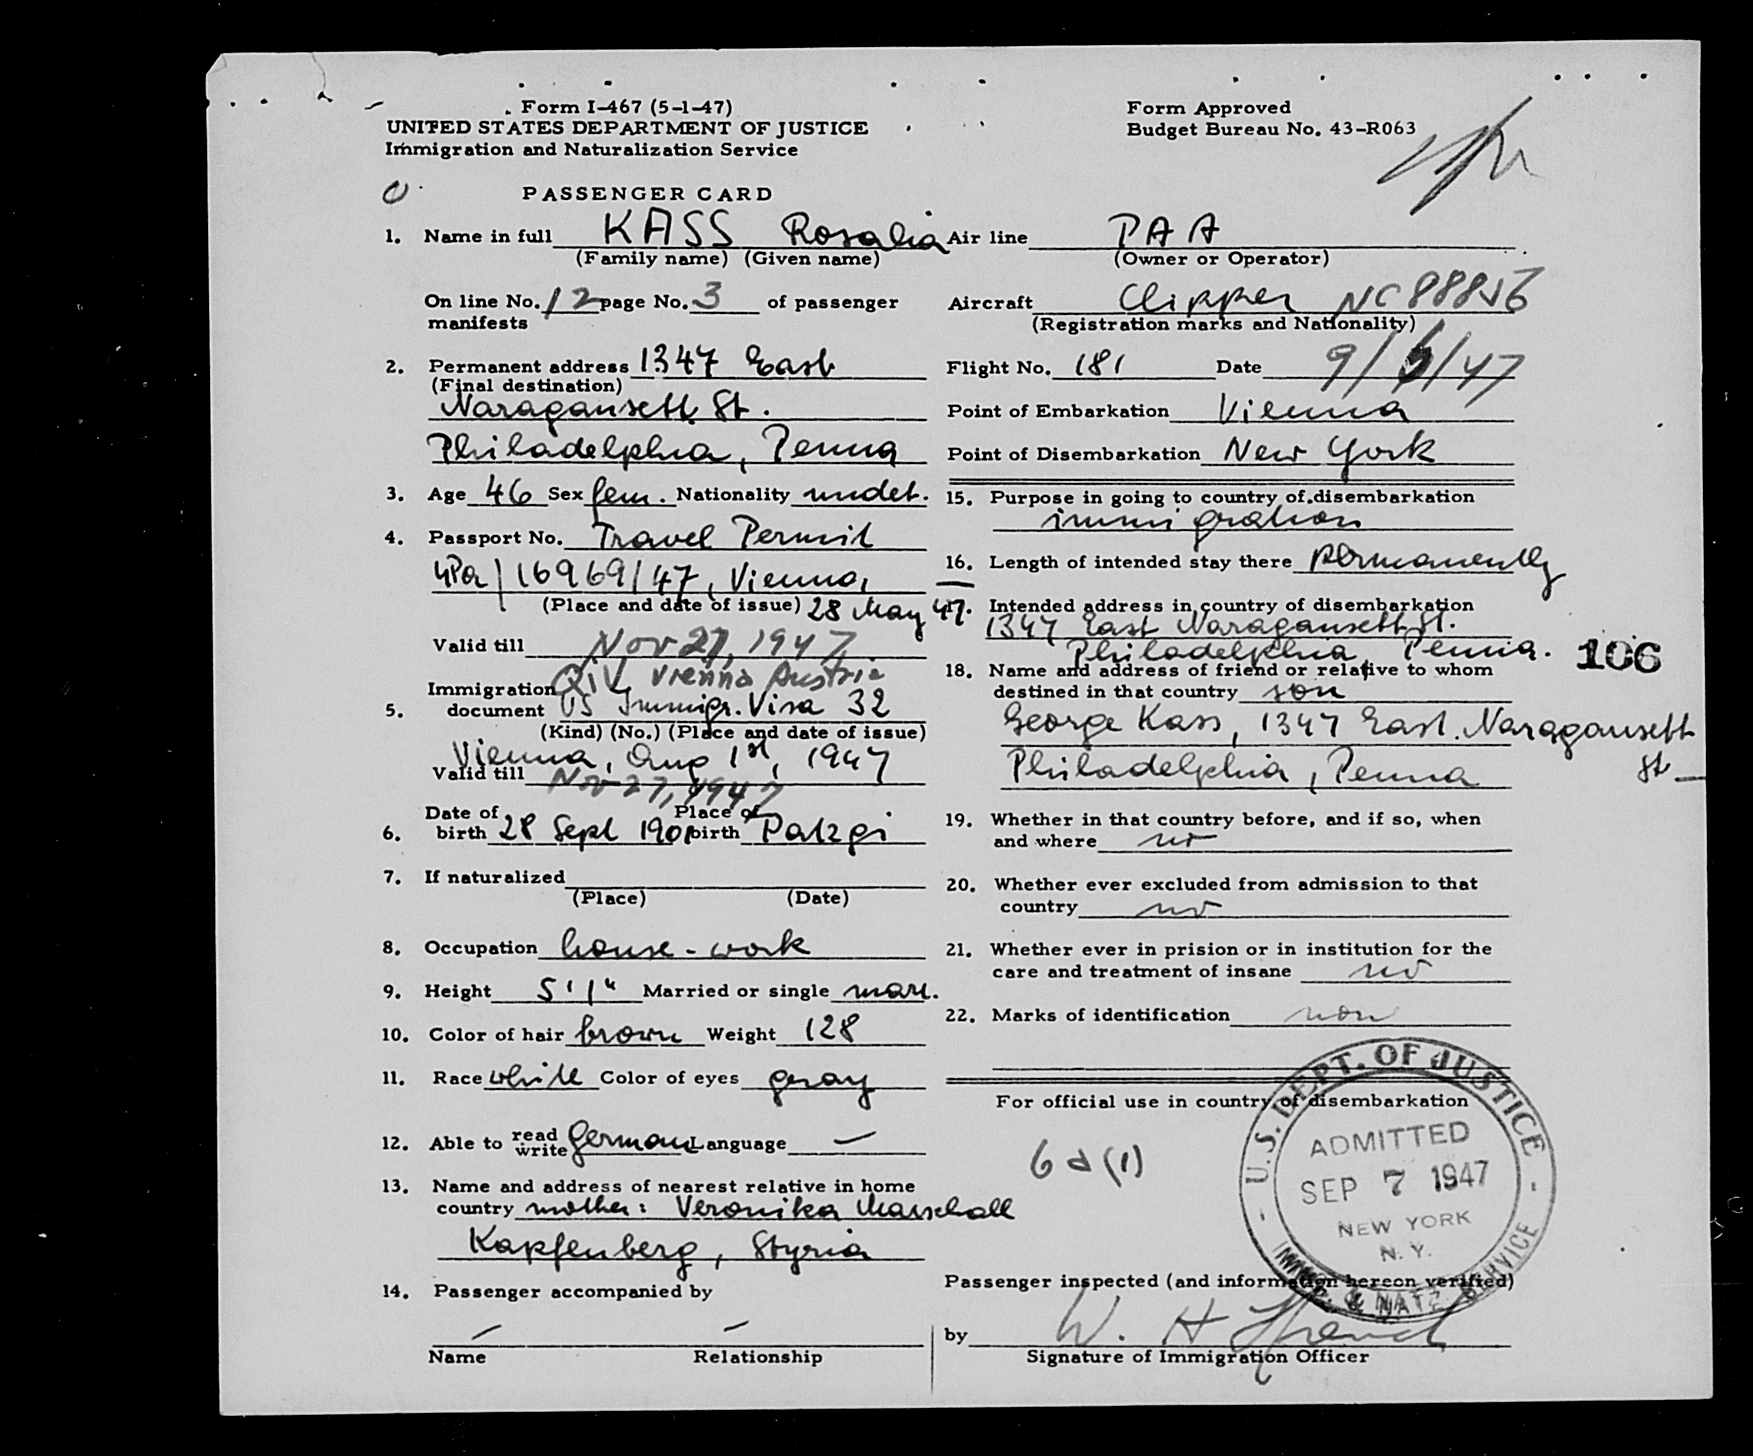 Form I-467 (5-1-47)
UNITED STATES DEPARTMENT OF JUSTICE
Immigration and Naturalization Service
Form Approved
Budget Bureau No. 43-R063
PASSENGER CARD
1. Name in full KASS Rosalia
(Family name) (Given name)
On line No. 12 page No. 3 of passenger
manifests
2. Permanent address 1347 East
(Final destination)
Naragansett St.
Philadelphia, Penna
3. Age 46 Sex fem. Nationality undet.
4. Passport No. Travel Permit
16969/47, Vienna,
(Place and date of issue) 28 May 47.
Valid till Nov 27, 1947
QIV Vienna Austria
Immigration
5. document US Immigr. Visa 32
(Kind) (No.) (Place and date of issue)
Vienna, Aug 1st, 1947
Valid till Nov 27, 1947
Date of Place of
6. birth 28 Sept 1901 birth Patzgi
7. If naturalized
(Place) (Date)
8. Occupation house-work
9. Height 5'1" Married or single marr.
10. Color of hair brown Weight 128
11. Race white Color of eyes gray
12. Able to read write German Language —
13. Name and address of nearest relative in home
country mother: Veronika Marschall
Kapfenberg, Styria
14. Passenger accompanied by
— —
Name Relationship
Air line PAA
(Owner or Operator)
Aircraft Clipper NC88856
(Registration marks and Nationality)
Flight No. 181 Date 9/6/47
Point of Embarkation Vienna
Point of Disembarkation New York
15. Purpose in going to country of disembarkation
immigration
16. Length of intended stay there permanently
Intended address in country of disembarkation
1347 East Naragansett St.
Philadelphia Penna.
106
18. Name and address of friend or relative to whom
destined in that country son
George Kass, 1347 East Naragansett
St—
Philadelphia, Penna
19. Whether in that country before, and if so, when
and where no
20. Whether ever excluded from admission to that
country no
21. Whether ever in prision or in institution for the
care and treatment of insane no
22. Marks of identification non
For official use in country of disembarkation
6a(1)
U.S. DEPT. OF JUSTICE
ADMITTED
SEP 7 1947
NEW YORK
N.Y.
IMMIG. & NATZ. SERVICE
Passenger inspected (and information hereon verified)
by W. H.
Signature of Immigration Officer